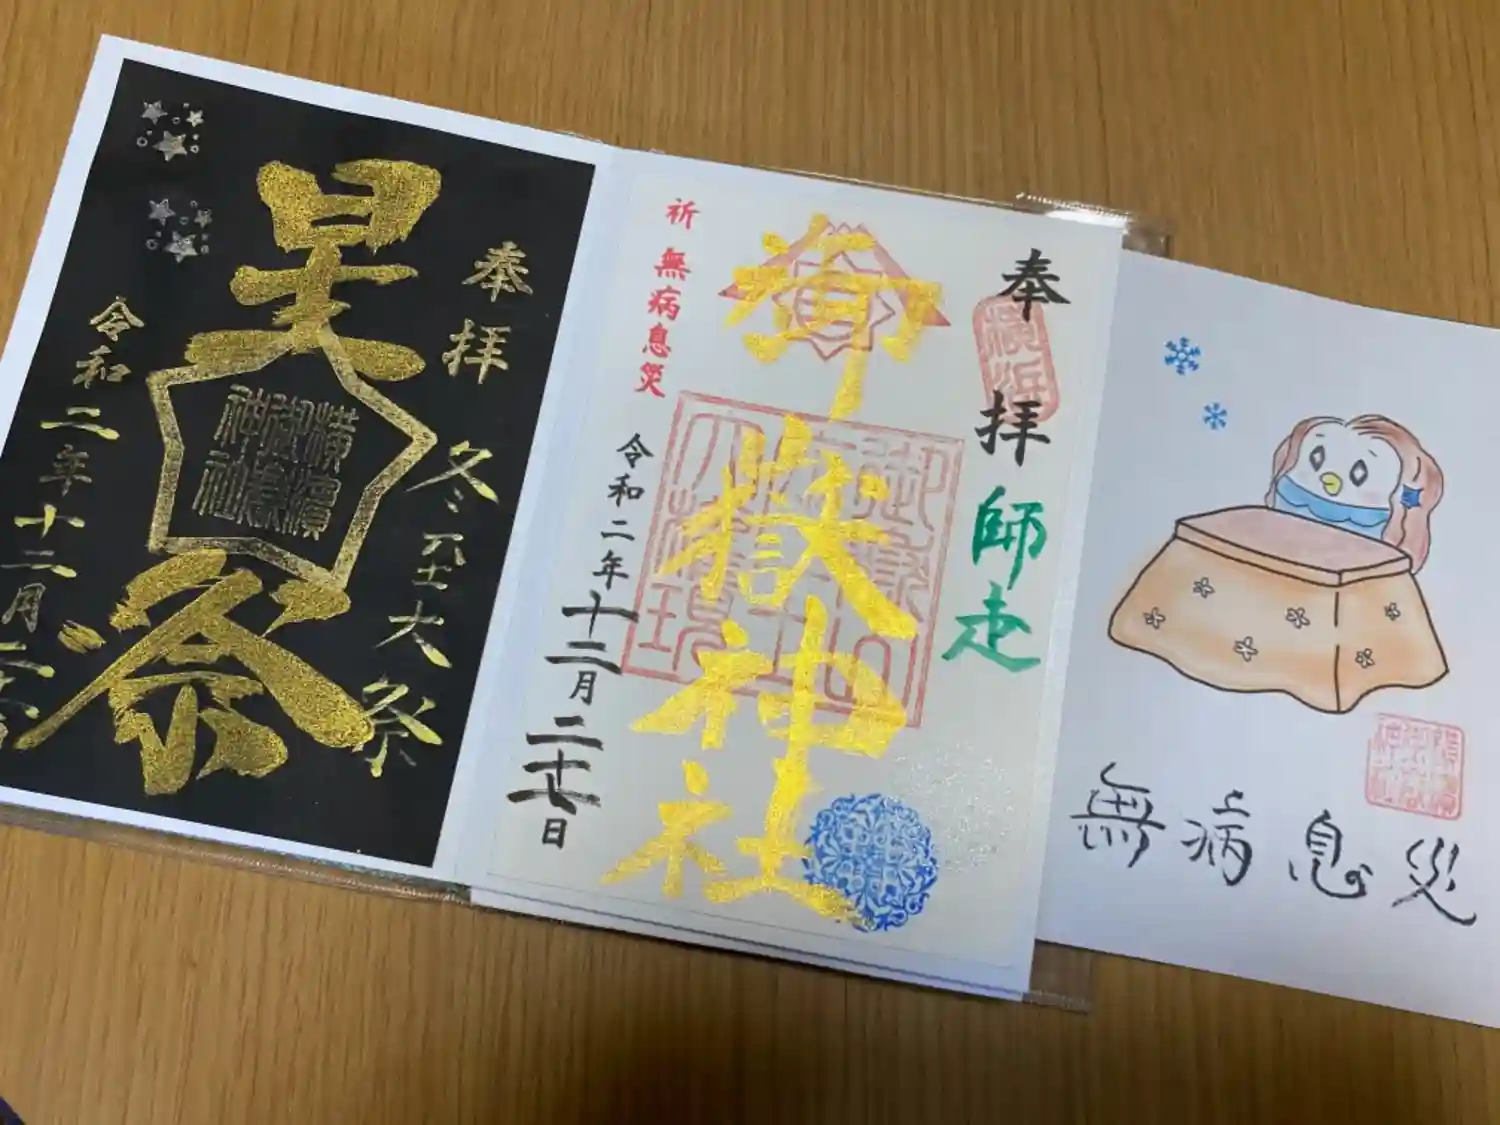 奉拝
冬至大祭
昊祭
横濱
御嶽
神社
令和二年十二月二
奉拝
横浜
師走
御嶽神社
祈 無病息災
令和二年十二月二十七日
無病息災